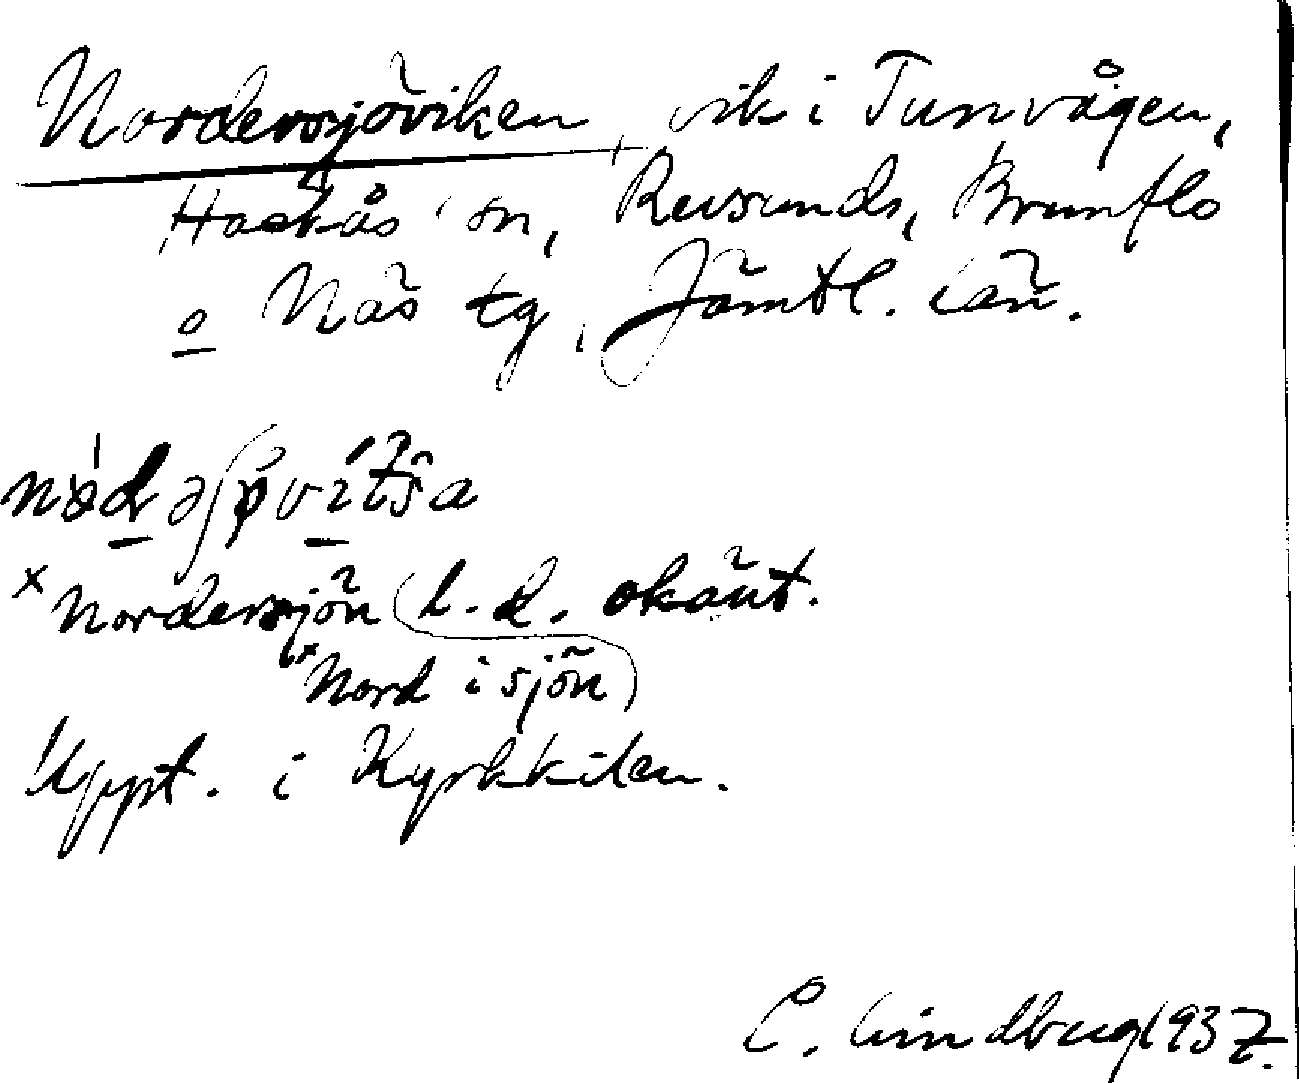 Nordersjöviken, vik i Tunvågen,
Hackås sn, Revsunds, Brunflo
o Näs tg, Jämtl. län.
×Nordersjön (h. d. okänt.
×Nord i sjön)
Uppt. i Kyrkkilen.
C. Lindberg 1937.